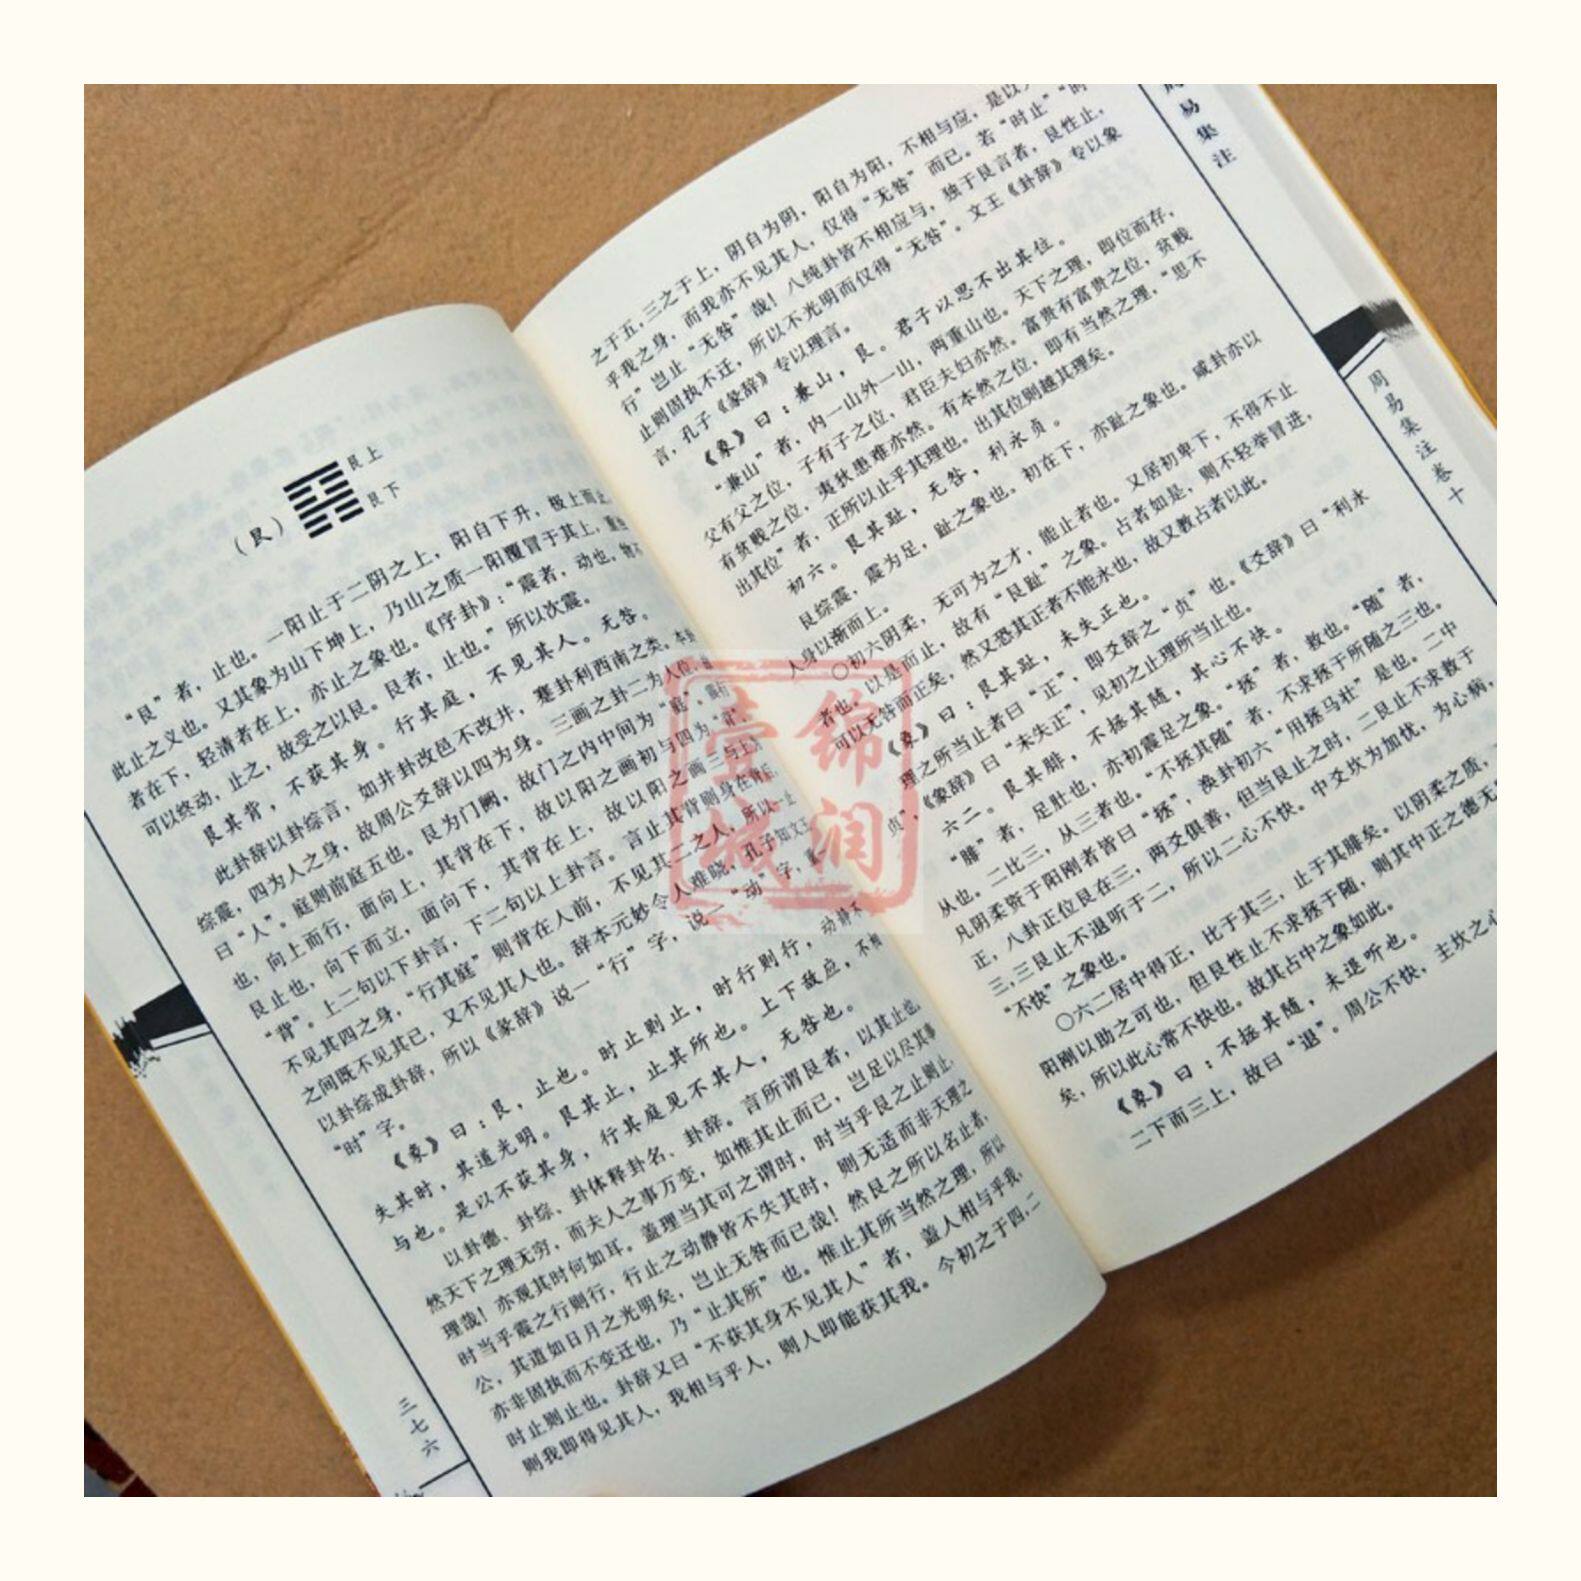 （艮）
艮上
艮下
“艮”者，止也。一阳止于二阴之上，阳自下升，极上而止，
此止之义也。又其象为山下坤上，乃山之质一阳覆冒于其上，重
者在下，轻清者在上，亦止之象也。《序卦》：“震者，动也，物不
可以终动，止之，故受之以艮。艮者，止也。”所以次震。
艮其背，不获其身。行其庭，不见其人。无咎。
此卦辞以卦综言，如井卦改邑不改井，蹇卦利西南之类。本
综震，四为人之身，故周公爻辞以四为身。三画之卦二为人位，故
曰“人”。庭则前庭五也。艮为门阙，故门之内中间为“庭”，震行
也，向上而行，面向上，其背在下，故以阳之画初与四为“背”。
艮止也，向下而立，面向下，其背在上，故以阳之画三与上为
“背”。上二句以下卦言，下二句以上卦言。言止其背则身在背后，
不见其四之身，“行其庭”则背在人前，不见其二之人，所以一止
之间既不见其已，又不见其人也。辞本元妙令人难晓，孔子知文王
以卦综成卦辞，所以《彖辞》说一“行”字，说一“动”字，重一
“时”字。
《彖》曰：艮，止也。时止则止，时行则行，动静不
失其时，其道光明。艮其止，止其所也。上下敌应，不相
与也。是以不获其身，行其庭见不其人，无咎也。
以卦德、卦综、卦体释卦名、卦辞。言所谓艮者，以其止也，
然天下之理无穷，而夫人之事万变，如惟其止而已，岂足以尽其事
理哉！亦观其时何如耳。盖理当其可之谓时，时当乎艮之止则止，
时当乎震之行则行，行止之动静皆不失其时，则无适而非天理之
公，其道如日月之光明矣，岂止无咎而已哉！然艮之所以名止者，
亦非固执而不变迁也，乃“止其所”也。惟止其所当然之理，所以
时止则止也。卦辞又曰“不获其身不见其人”者，盖人相与乎我，
则我即得见其人，我相与乎人，则人即能获其我。今初之于四，二
三七六
周易集注
周易集注卷十
之于五，三之于上，阴自为阴，阳自为阳，不相与应，是以
乎我之身，而我亦不见其人，仅得“无咎”而已。若“时止”“时
行”岂止“无咎”哉！八纯卦皆不相应与，独于艮言者，艮性止，
止则固执不迁，所以不光明而仅得“无咎”。文王《卦辞》专以象
言，孔子《彖辞》专以理言。
《象》曰：兼山，艮。君子以思不出其位。
“兼山”者，内一山外一山，两重山也。天下之理，即位而存，
父有父之位，子有子之位，君臣夫妇亦然。富贵有富贵之位，贫贱
有贫贱之位，夷狄患难亦然。有本然之位，即有当然之理，“思不
出其位”者，正所以止乎其理也。出其位则越其理矣。
初六。艮其趾，无咎，利永贞。
艮综震，震为足，趾之象也。初在下，亦趾之象也。咸卦亦以
人身以渐而上。
○初六阴柔，无可为之才，能止者也。又居初卑下，不得不止
者也。以是而止，故有“艮趾”之象。占者如是，则不轻举冒进，
可以无咎而正矣，然又恐其正者不能永也，故又教占者以此。
《象》曰：艮其趾，未失正也。
理之所当止者曰“正”，即爻辞之“贞”也。《爻辞》曰“利永
贞”，《象辞》曰“未失正”，见初之止理所当止也。
六二。艮其腓，不拯其随，其心不快。
“腓”者，足肚也，亦初震足之象。“拯”者，救也。“随”者，
从也。二比三，从三者也。“不拯其随”者，不求拯于所随之三也。
凡阴柔资于阳刚者皆曰“拯”，涣卦初六“用拯马壮”是也。二中
正，八卦正位艮在三，两爻俱善，但当艮止之时，二艮止不求救于
三，三艮止不退听于二，所以二心不快。中爻坎为加忧，为心病，
“不快”之象也。
○六二居中得正，比于其三，止于其腓矣。以阴柔之质，
阳刚以助之可也，但艮性止不求拯于随，则其中正之德无
矣，所以此心常不快也。故其占中之象如此。
《象》曰：不拯其随，未退听也。
二下而三上，故曰“退”。周公不快，主坎之心
壹锦
城润